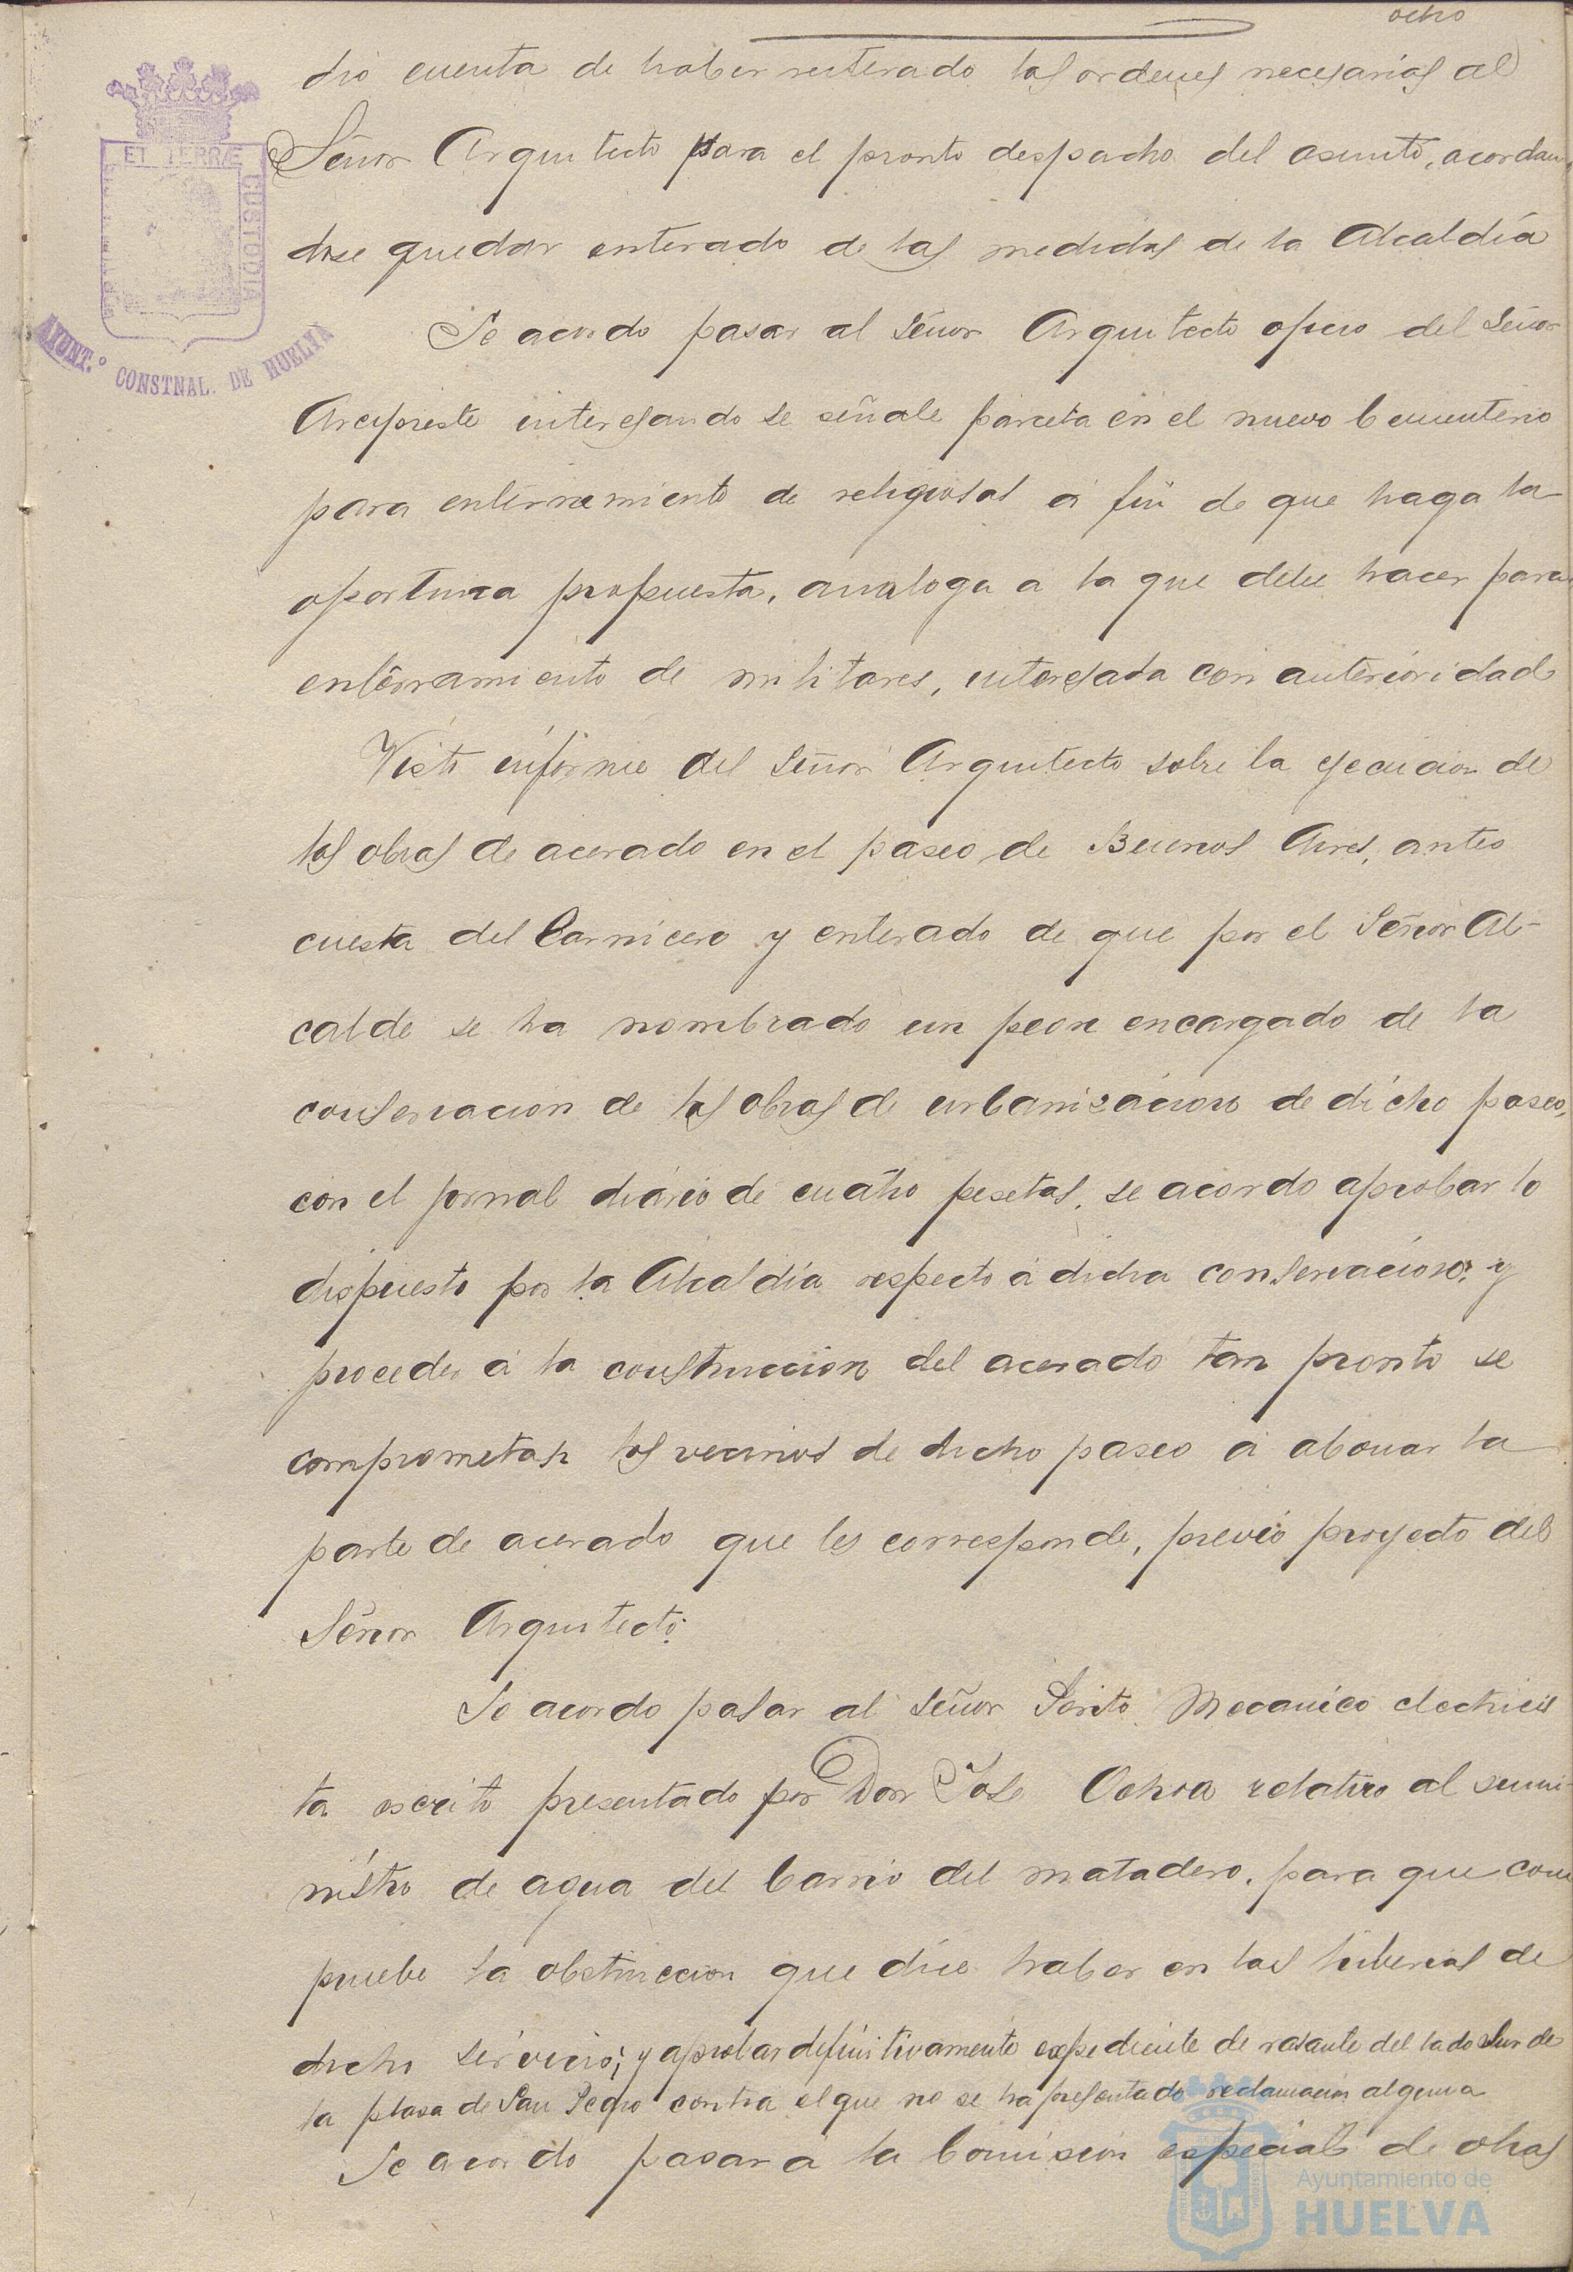 ocho
dio cuenta de haber reiterado las ordenes necesarias al
Señor Arquitecto para el pronto despacho del asunto, acordan
dose quedar enterado de las medidas de la Alcaldía
Se acordo pasar al Señor Arquitecto oficio del Señor
Arcipreste interesando se señale parcela en el nuevo Cementerio
para enterramiento de religiosas á fin de que haga la
oportuna propuesta, analoga a la que debe hacer para
enterramiento de militares, interesada con anterioridad
Visto informe del Señor Arquitecto sobre la ejecucion de
las obras de acerado en el paseo de Buenos Aires, antes
cuesta del Carnicero y enterado de que por el Señor Al-
calde se ha nombrado un peon encargado de la
conservacion de las obras de urbanizacion de dicho paseo,
con el jornal diario de cuatro pesetas, se acordo aprobar lo
dispuesto por la Alcaldía respecto á dicha conservacion y
proceder á la construccion del acerado tan pronto se
comprometan los vecinos de dicho paseo á abonar la
parte de acerado que les corresponde, previo proyecto del
Señor Arquitecto.
Se acordo pasar al Señor Perito Mecanico electricis
ta escrito presentado por Don Jose Ochoa relativo al sumi-
nistro de agua del barrio del matadero, para que com
pruebe la obstruccion que dice haber en las tuberias de
dicho servicio; y aprobar definitivamente expediente de rasante del lado Sur de
la plaza de San Pedro contra el que no se ha presentado reclamación alguna
Se acordo pasar a la Comision especial de obras
ET TERRÆ
CUSTODIA
AYUNT.º CONSTNAL. DE HUELVA
Ayuntamiento de
HUELVA